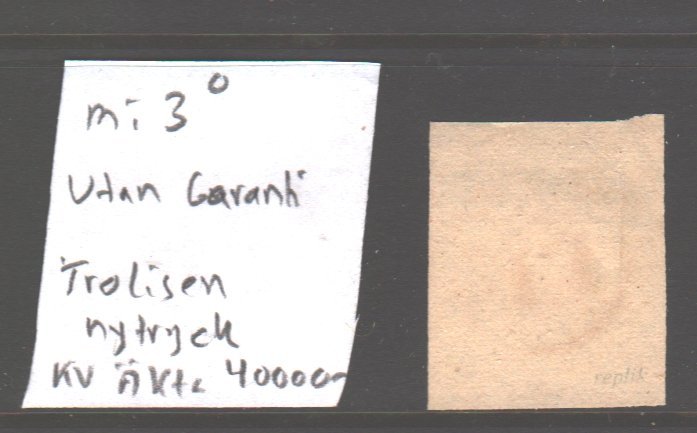 mi 3°
Utan Garanti
Trolisen
nytryck
KV Äkta 40000-
replik